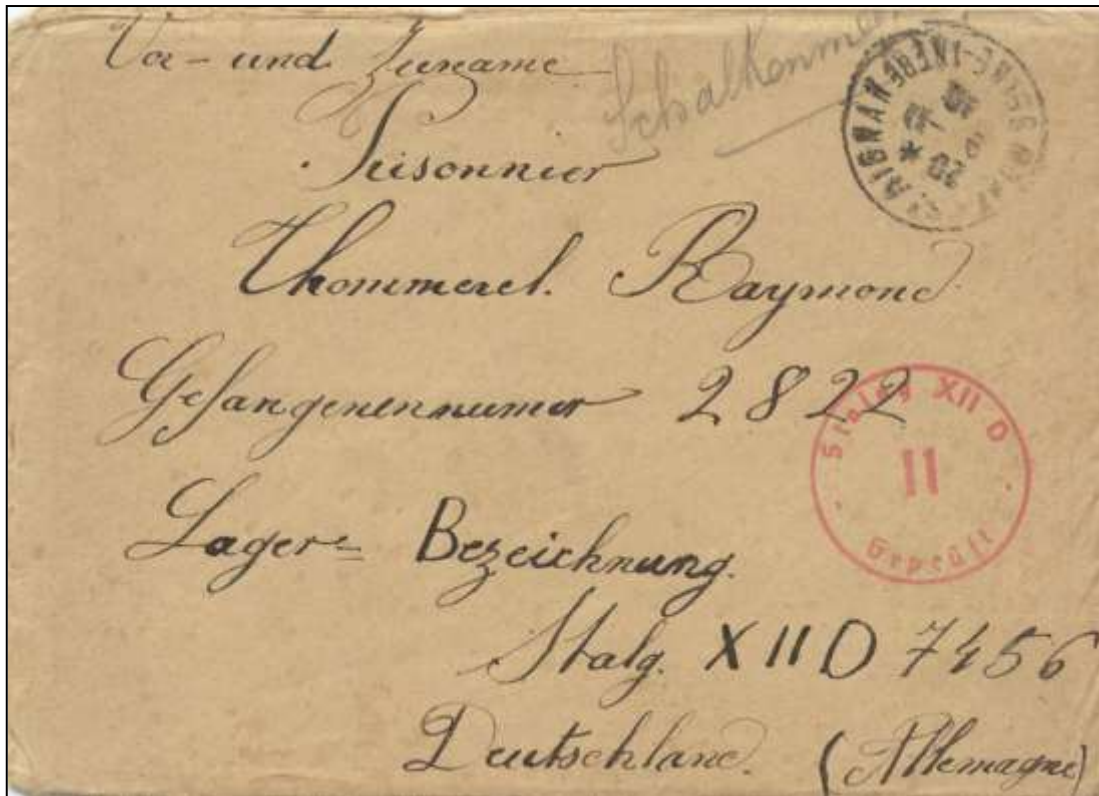 Vor- und Zuname
Prisonnier
Thommerel. Raymond
Gefangenennumer 2822
Lager= Bezeichnung.
Stalg. XII D 7456
Deutschland. (Allemagne)
Stalag XII D
II
Geprüft